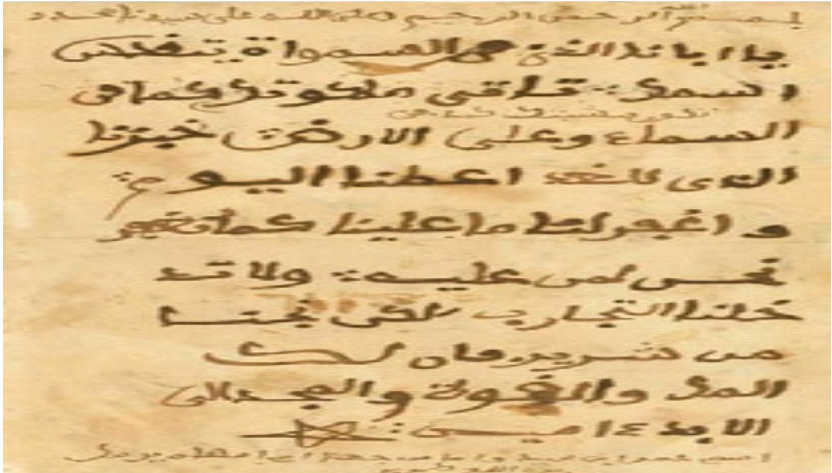 بسم الله الرحمن الرحيم صلى الله على سيدنا محمد
يا ابانا الذي في السمواة يتقدس
اسمك تاتي ملكوتك كما في
تكون مشيتك كما في
السماء وعلى الارض خبزنا
الذي للغد اعطنا اليوم
و اغفرلنا ما علينا كما نغفر
نحن لمن عليه ولا تد
خلنا التجارب لكن نجنا
من شرير فان لك
الملك والقوة والمجد الى
الابد امين